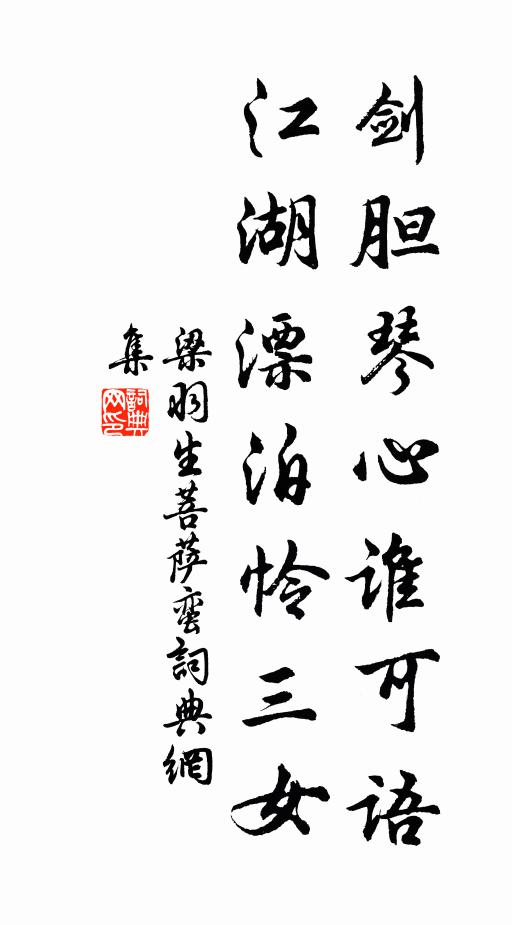 剑胆琴心谁可语
江湖漂泊怜三女
梁羽生菩萨蛮詞典網
集
詞典
网印